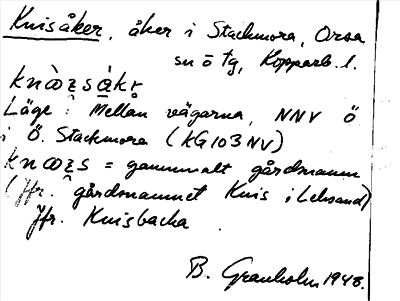 Knisåker, åker i Stackmora, Orsa
sn o tg, Kopparb. l.
Läge: Mellan vägarna, NNV Ö
i Ö. Stackmora (KG103NV)
= gammalt gårdsnamn
(Jfr. gårdsnamnet Knis i Leksand)
Jfr. Knisbacka
B. Granholm 1948.